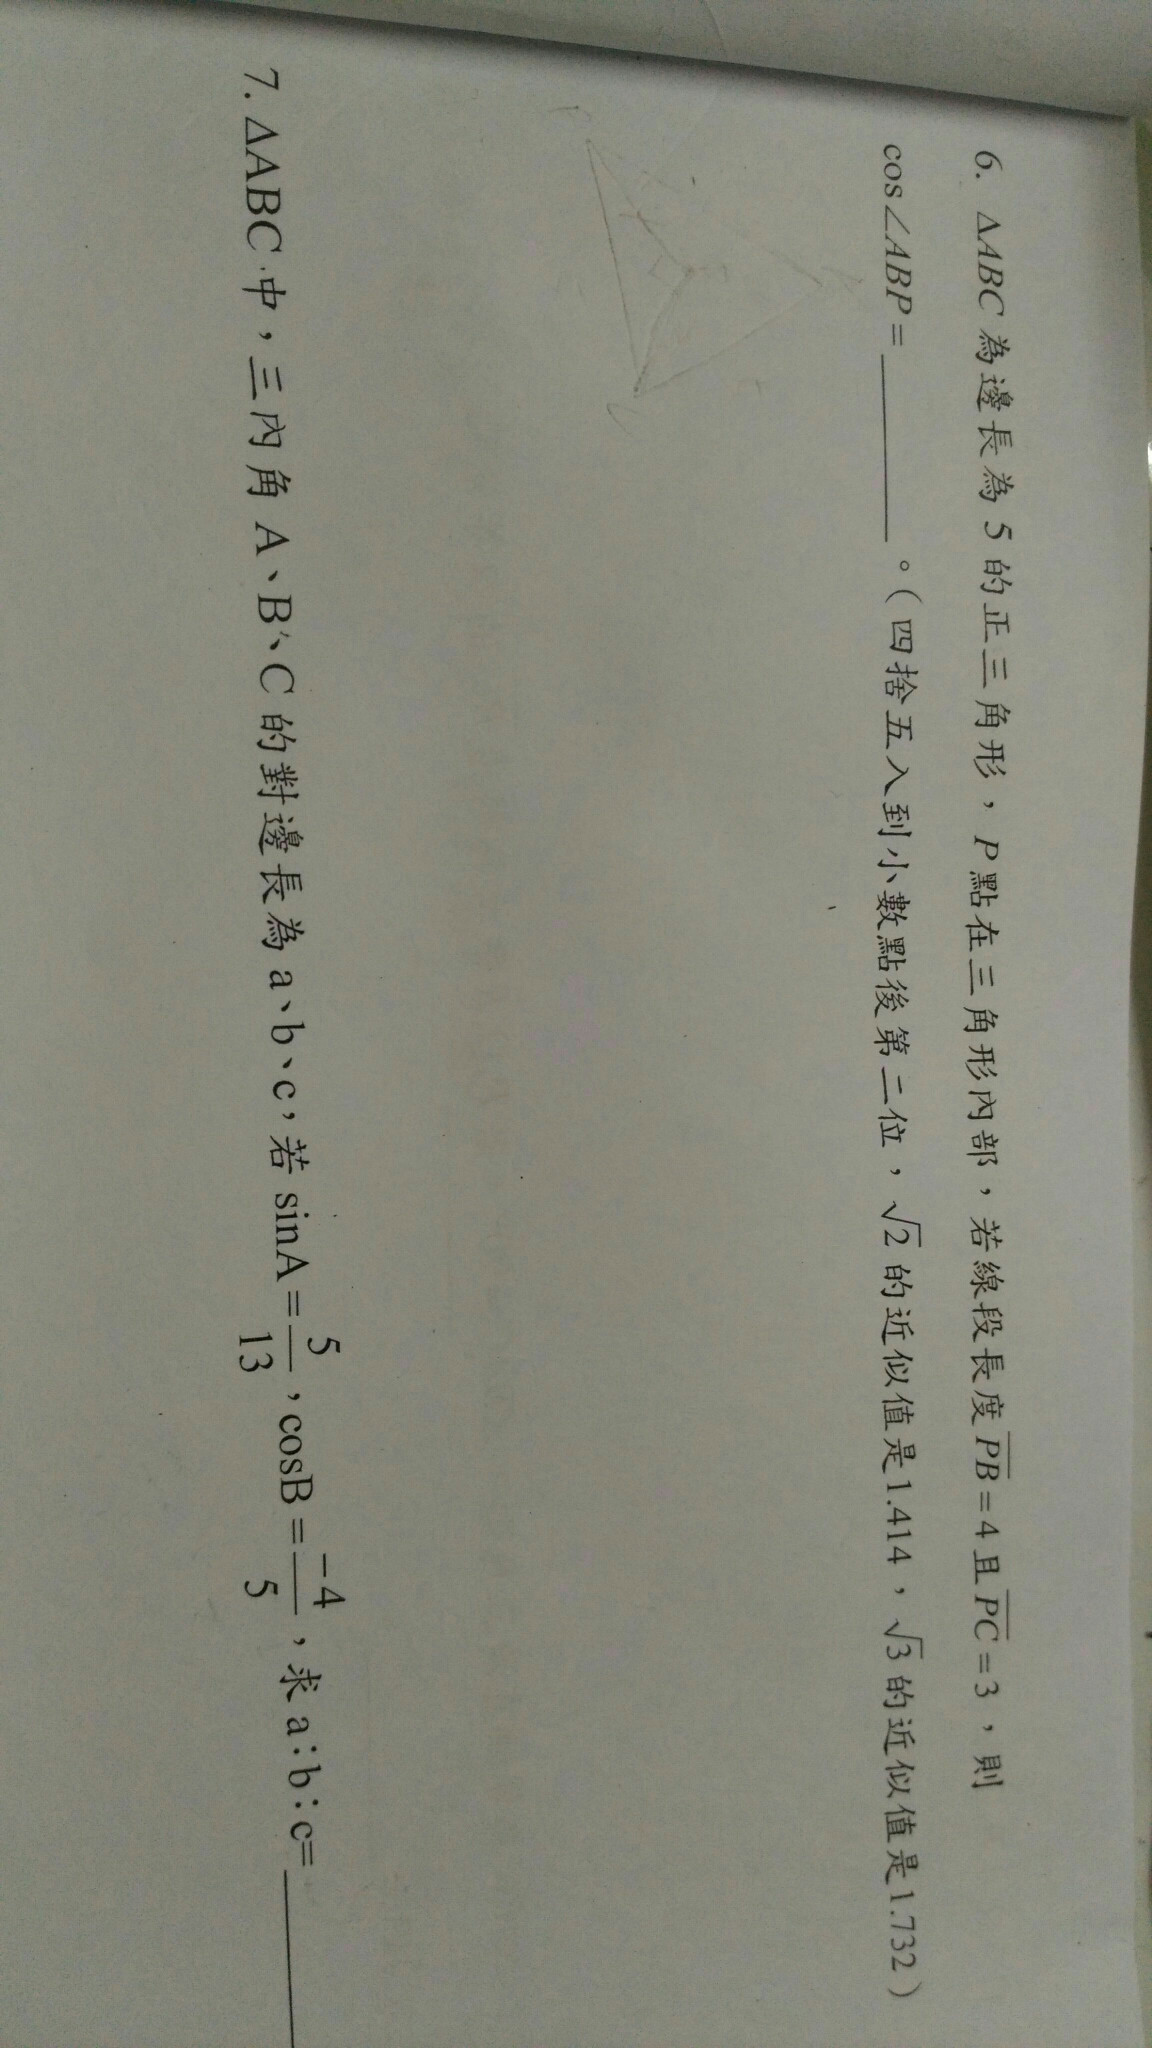 6. ΔABC 為邊長為 5 的正三角形，P 點在三角形內部，若線段長度 \overline{PB}=4 且 \overline{PC}=3，則
cos∠ABP=________。（四捨五入到小數點後第二位，√2 的近似值是1.414，√3 的近似值是1.732）
7. ΔABC 中，三內角 A、B、C 的對邊長為 a、b、c，若 sinA=5/13，cosB=-4/5，求 a:b:c=________